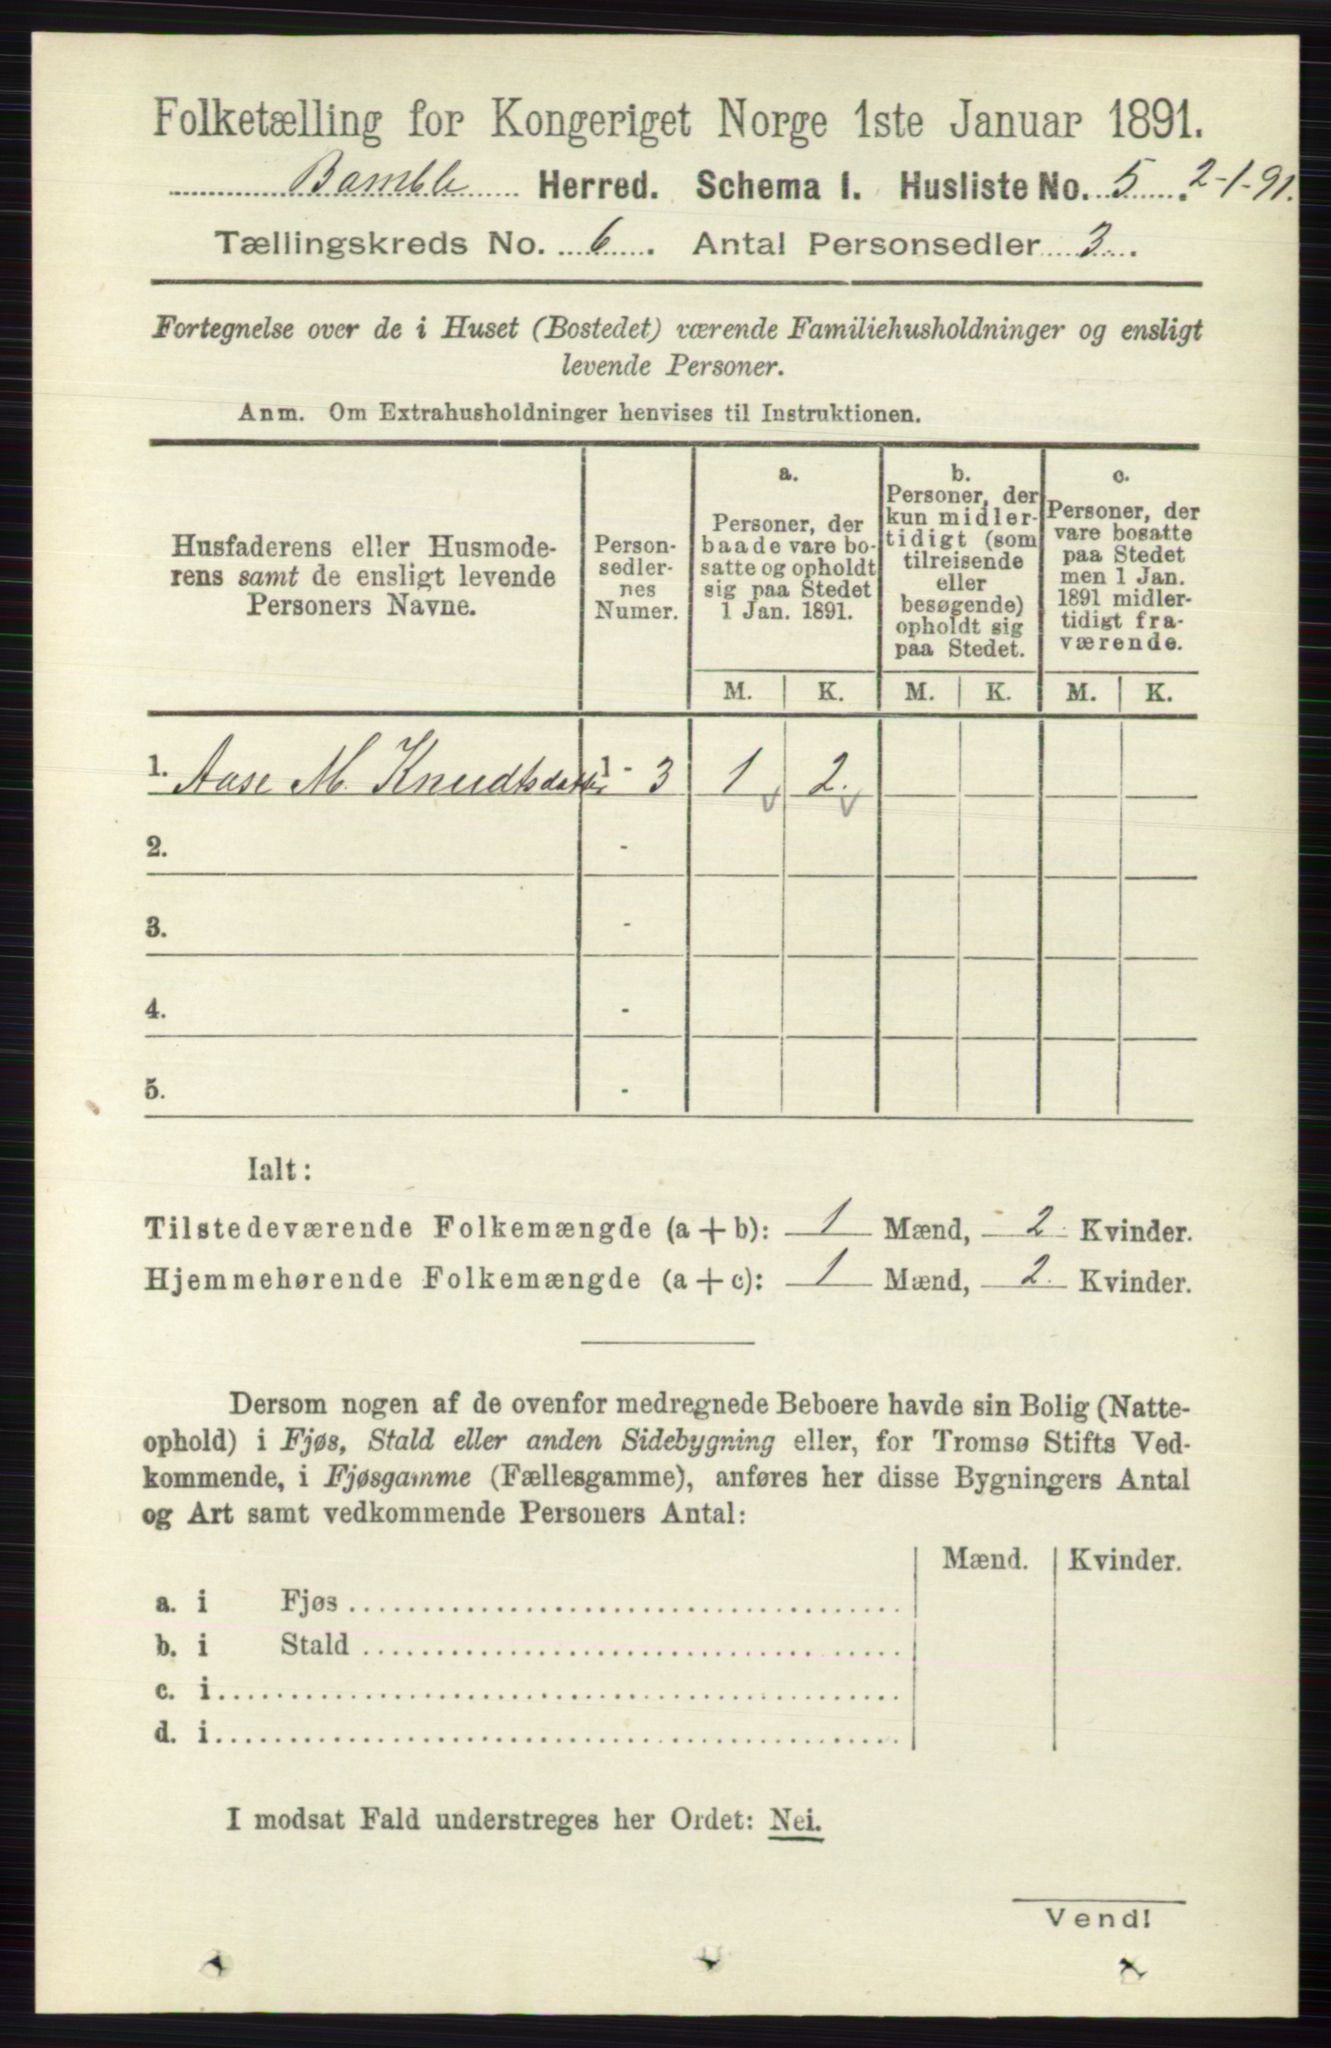 Folketælling for Kongeriget Norge 1ste Januar 1891.
Bamble Herred. Schema I. Husliste No. 5. 2-1-91.
Tællingskreds No. 6. Antal Personsedler 3.
Fortegnelse over de i Huset (Bostedet) værende Familiehusholdninger og ensligt
levende Personer.
Anm. Om Extrahusholdninger henvises til Instruktionen.
Husfaderens eller Husmode-
rens samt de ensligt levende
Personers Navne.
Person-
sedler-
nes
Numer.
a.
Personer, der
baade vare bo-
satte og opholdt
sig paa Stedet
1 Jan. 1891.
b.
Personer, der
kun midler-
tidigt (som
tilreisende
eller
besøgende)
opholdt sig
paa Stedet.
c.
Personer, der
vare bosatte
paa Stedet
men 1 Jan.
1891 midler-
tidigt fra-
værende.
M. K. M. K. M. K.
1. Aase M. Knudtsdatter 1 - 3 1 2.
2. -
3. -
4. -
5. -
Ialt:
Tilstedeværende Folkemængde (a + b): 1 Mænd, 2 Kvinder.
Hjemmehørende Folkemængde (a + c): 1 Mænd, 2 Kvinder.
Dersom nogen af de ovenfor medregnede Beboere havde sin Bolig (Natte-
ophold) i Fjøs, Stald eller anden Sidebygning eller, for Tromsø Stifts Ved-
kommende, i Fjøsgamme (Fællesgamme), anføres her disse Bygningers Antal
og Art samt vedkommende Personers Antal:
Mænd. Kvinder.
a. i Fjøs
b. i Stald
c. i
d. i
I modsat Fald understreges her Ordet: Nei.
Vend!